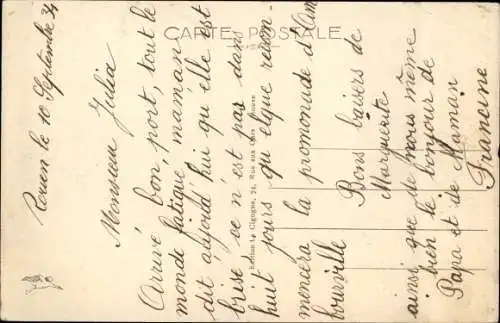 CARTE POSTALE
Rouen le 10 Septembre 34
Monsieur Julia
Arrivé bon, port, tout le
monde fatigué, maman
dit aujourd'hui qu'elle est
brisé, ce n'est pas dans
huit jours qu'elque recom-
mencera la promenade d'Hum
bourville
Bons baisers de
Marguerite
ainsi que de nous même
bien le bonjour de
Papa et de Maman
Francine
Edition La Cigogne, 74, Rue aux Ours Rouen